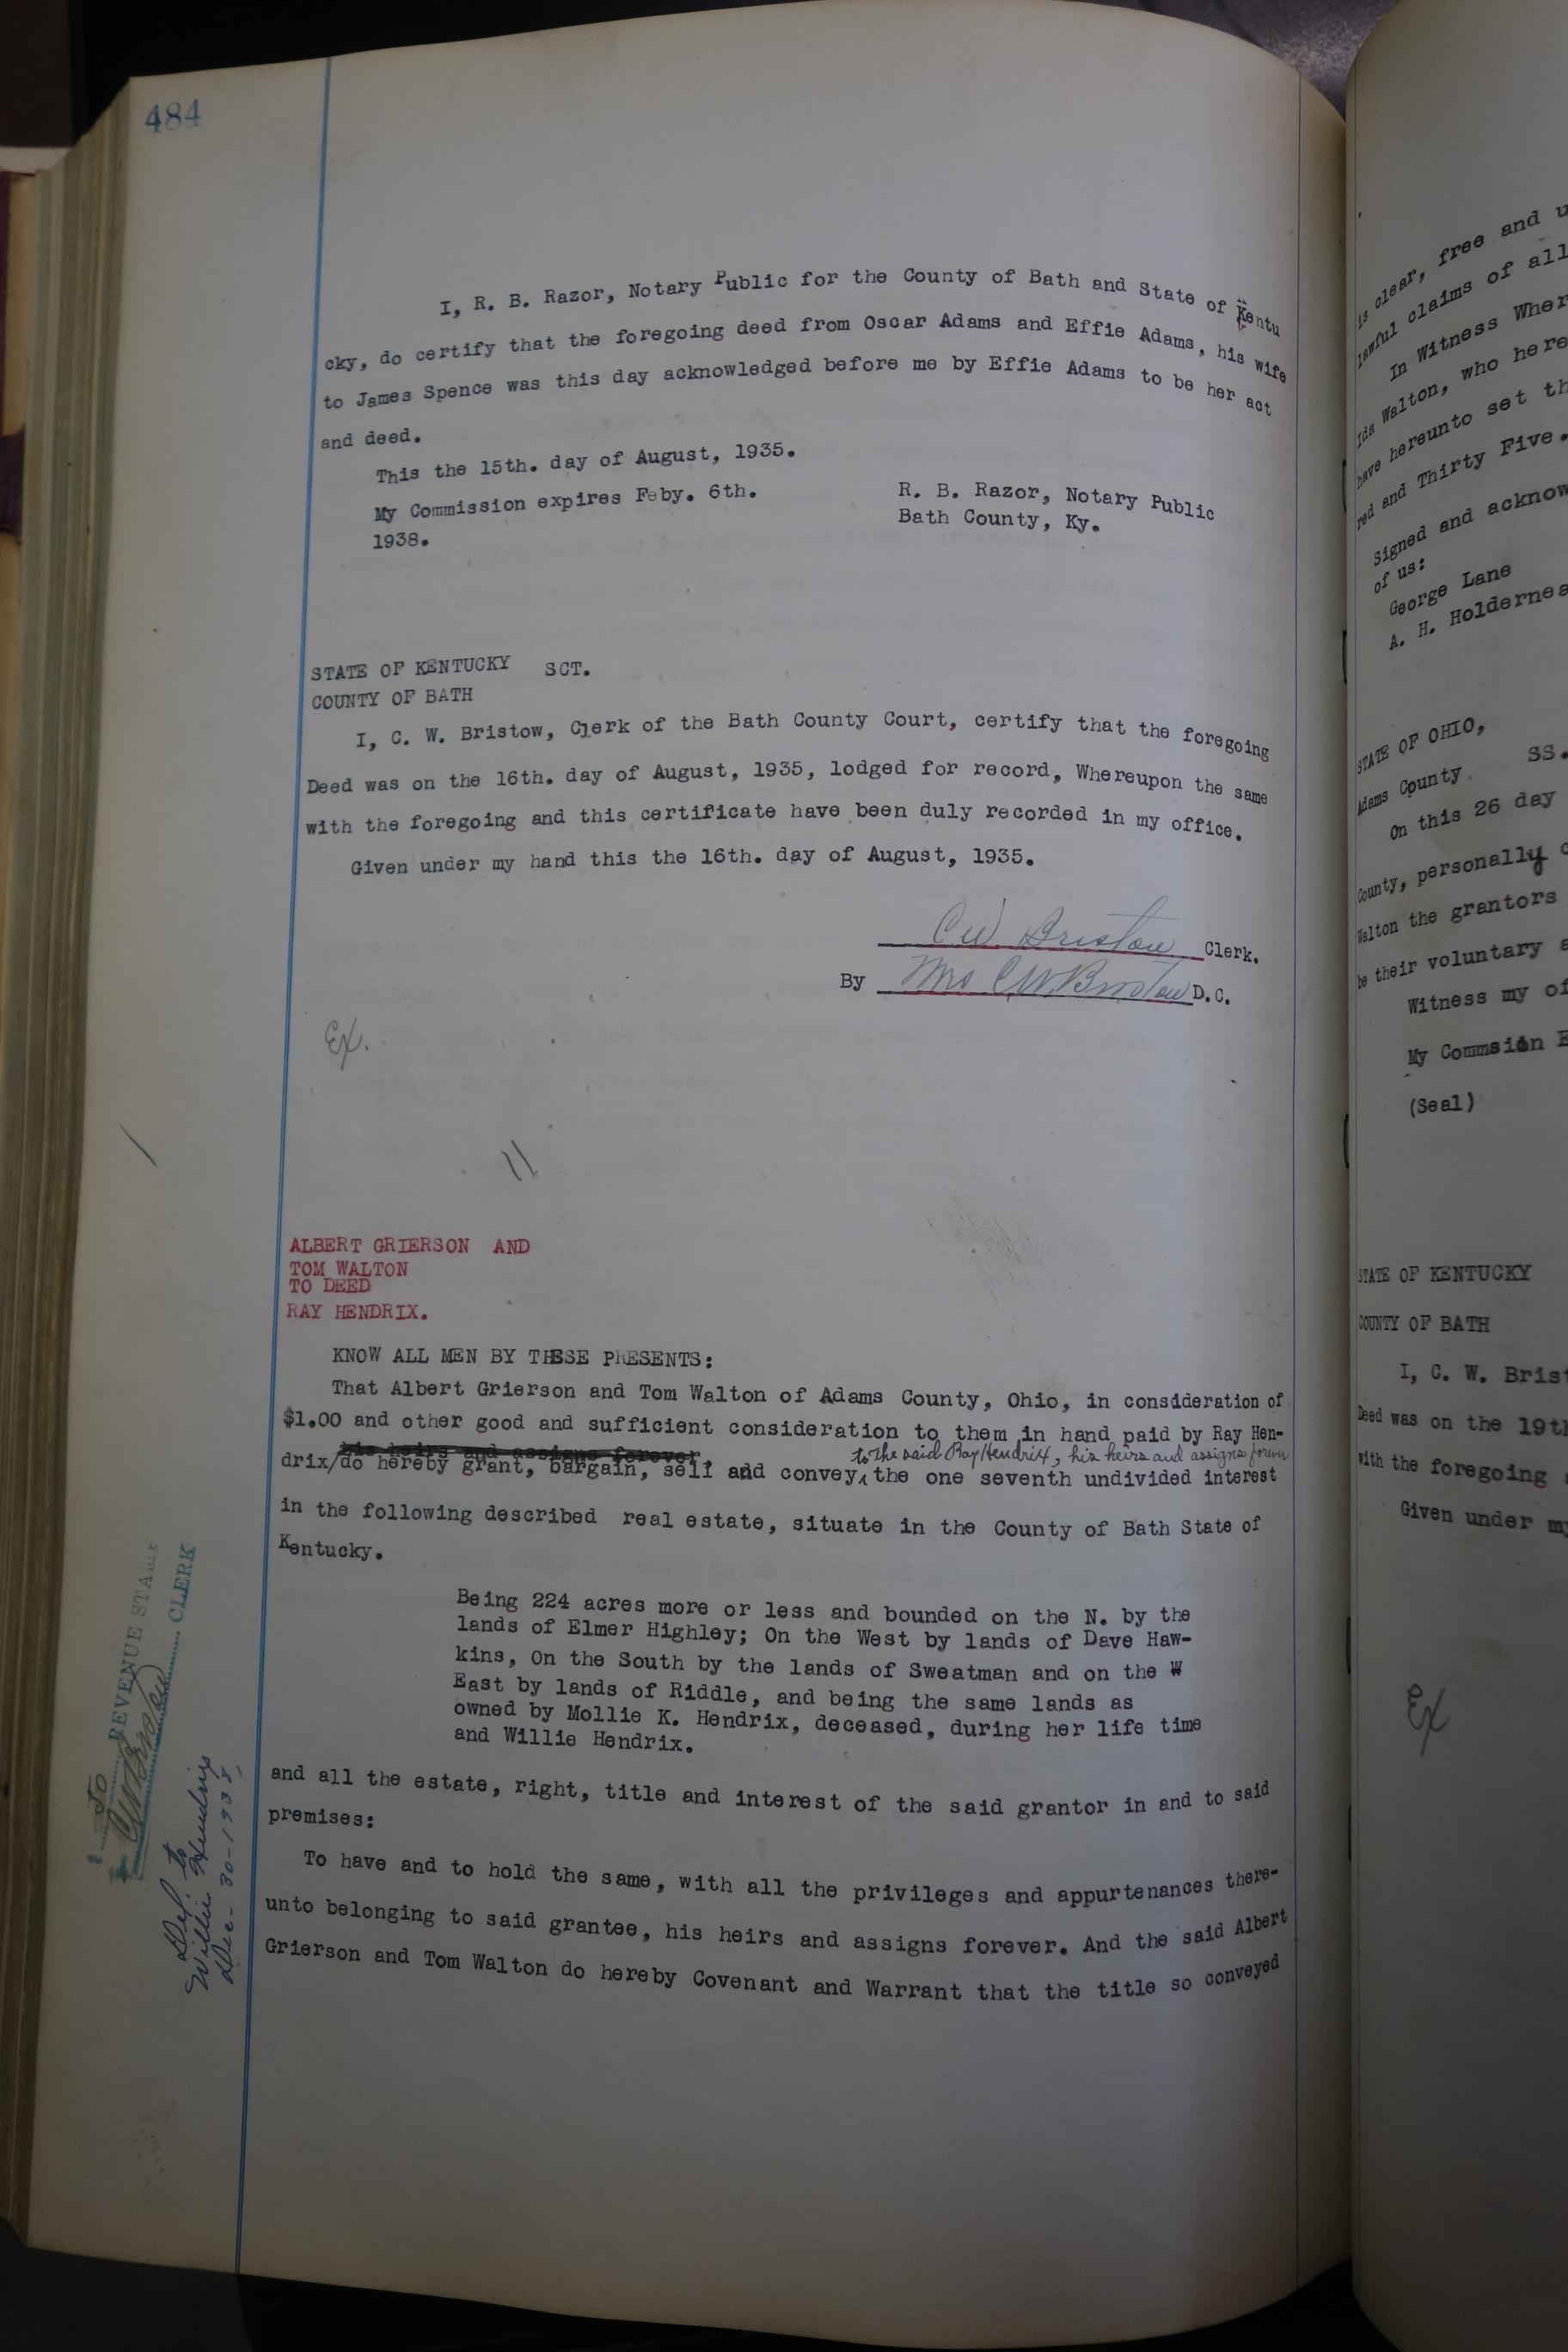 484
I, R. B. Razor, Notary Public for the County of Bath and State of Kentu
cky, do certify that the foregoing deed from Oscar Adams and Effie Adams, his wife
to James Spence was this day acknowledged before me by Effie Adams to be her act
and deed.
This the 15th. day of August, 1935.
My Commission expires Feby. 6th.
1938.
R. B. Razor, Notary Public
Bath County, Ky.
STATE OF KENTUCKY SCT.
COUNTY OF BATH
I, C. W. Bristow, Clerk of the Bath County Court, certify that the foregoing
Deed was on the 16th. day of August, 1935, lodged for record, Whereupon the same
with the foregoing and this certificate have been duly recorded in my office.
Given under my hand this the 16th. day of August, 1935.
C W Bristow Clerk.
By Mrs C W. Bristow D.C.
Ex.
ALBERT GRIERSON AND
TOM WALTON
TO DEED
RAY HENDRIX.
KNOW ALL MEN BY THESE PRESENTS:
That Albert Grierson and Tom Walton of Adams County, Ohio, in consideration of
$1.00 and other good and sufficient consideration to them in hand paid by Ray Hen-
his heirs and assigns forever,
to the said Ray Hendrix, his heirs and assigns forever
drix/do hereby grant, bargain, sell and convey, the one seventh undivided interest
in the following described real estate, situate in the County of Bath State of
Kentucky.
Being 224 acres more or less and bounded on the N. by the
lands of Elmer Highley; On the West by lands of Dave Haw-
kins, On the South by the lands of Sweatman and on the W
East by lands of Riddle, and being the same lands as
owned by Mollie K. Hendrix, deceased, during her life time
and Willie Hendrix.
and all the estate, right, title and interest of the said grantor in and to said
premises:
To have and to hold the same, with all the privileges and appurtenances there-
unto belonging to said grantee, his heirs and assigns forever. And the said Albert
Grierson and Tom Walton do hereby Covenant and Warrant that the title so conveyed
$ .50 REVENUE STAMP
C W Bristow CLERK
Del. to
Willie Hendrix
Dec- 30-1938,
is clear, free and u
lawful claims of all
In Witness Wher
Ida Walton, who here
have hereunto set th
red and Thirty Five.
Signed and acknow
of us:
George Lane
A. H. Holdernes
STATE OF OHIO,
SS.
Adams County
On this 26 day
County, personally c
Walton the grantors
be their voluntary a
Witness my of
My Commsion E
(Seal)
STATE OF KENTUCKY
COUNTY OF BATH
I, C. W. Brist
Deed was on the 19th
with the foregoing
Given under my
Ex